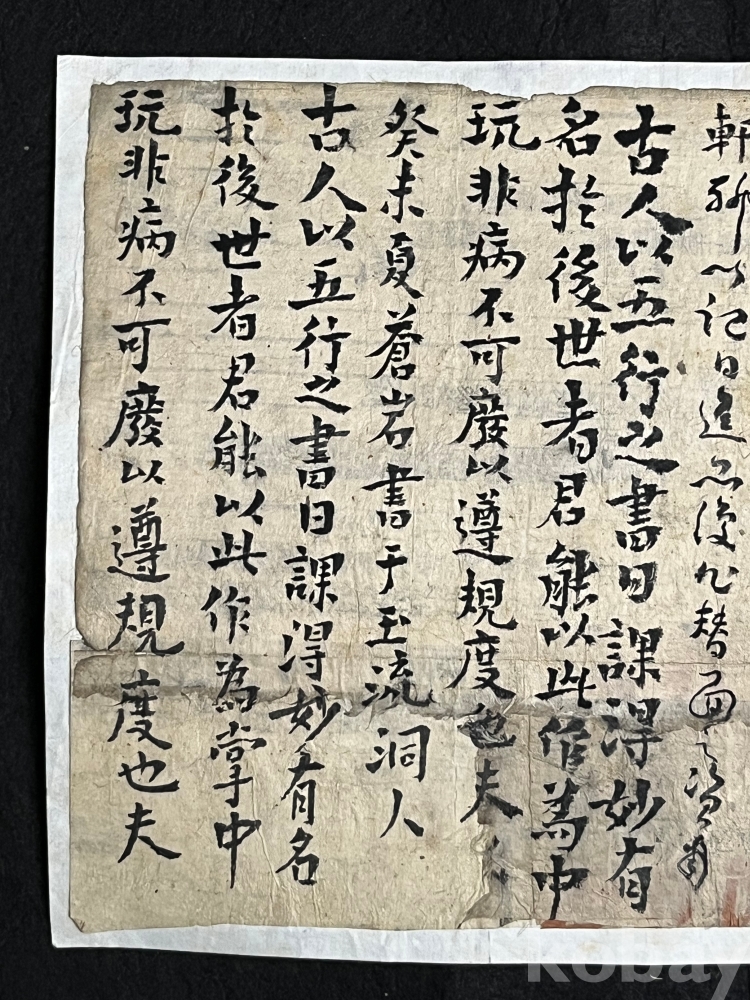 軒聊以記日進
古人以五行之書日課得妙有
名於後世者君能以此作為中
玩非病不可廢以遵規度也夫
癸未夏蒼岩書于玉流洞人
古人以五行之書日課得妙有名
於後世者君能以此作為掌中
玩非病不可廢以遵規度也夫
kobay